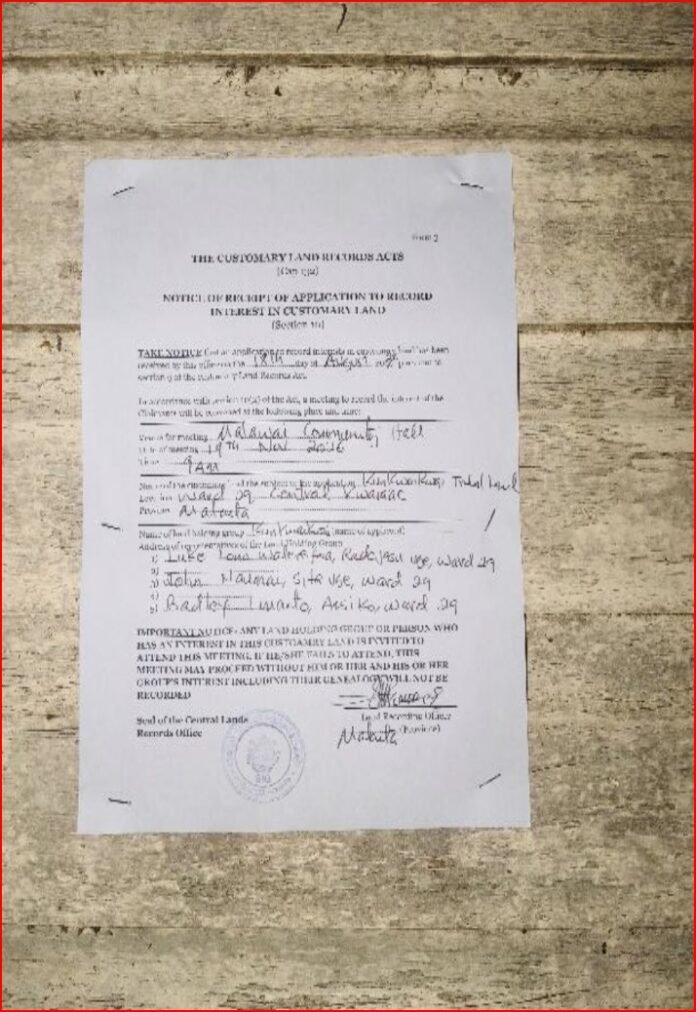 Form 2
THE CUSTOMARY LAND RECORDS ACTS
(Cap 132)
NOTICE OF RECEIPT OF APPLICATION TO RECORD
INTEREST IN CUSTOMARY LAND
(Section 10)
TAKE NOTICE that an application to record interests in customary land has been
received by this office on the 18th day of August pursuant to
section 9 of the customary Land Records Act.
In accordance with section 10(2) of the Act, a meeting to record the interest of the
Claimants will be convened at the following place and time:
Venue for meeting Community Hall
Date of meeting 19th Nov
Time 9 AM
Name of the customary land the subject of the application Tribal Land
Location Ward 29 Central Kwaraae
Province Malaita
Name of land holding group (name of approved)
Address of representatives of the Land Holding Group
1) Luke ward 29
John Sita vge, ward 29
ward 29
IMPORTANT NOTICE: ANY LAND HOLDING GROUP OR PERSON WHO
HAS AN INTEREST IN THIS CUSTOAMRY LAND IS INVITED TO
ATTEND THIS MEETING. IF HE/SHE FAILS TO ATTEND, THIS
MEETING MAY PROCEED WITHOUT HIM OR HER AND HIS OR HER
GROUP'S INTEREST INCLUDING THEIR GENEALOGY WILL NOT BE
RECORDED
Seal of the Central Lands
Records Office
Land Recording Officer
Malaita (Province)